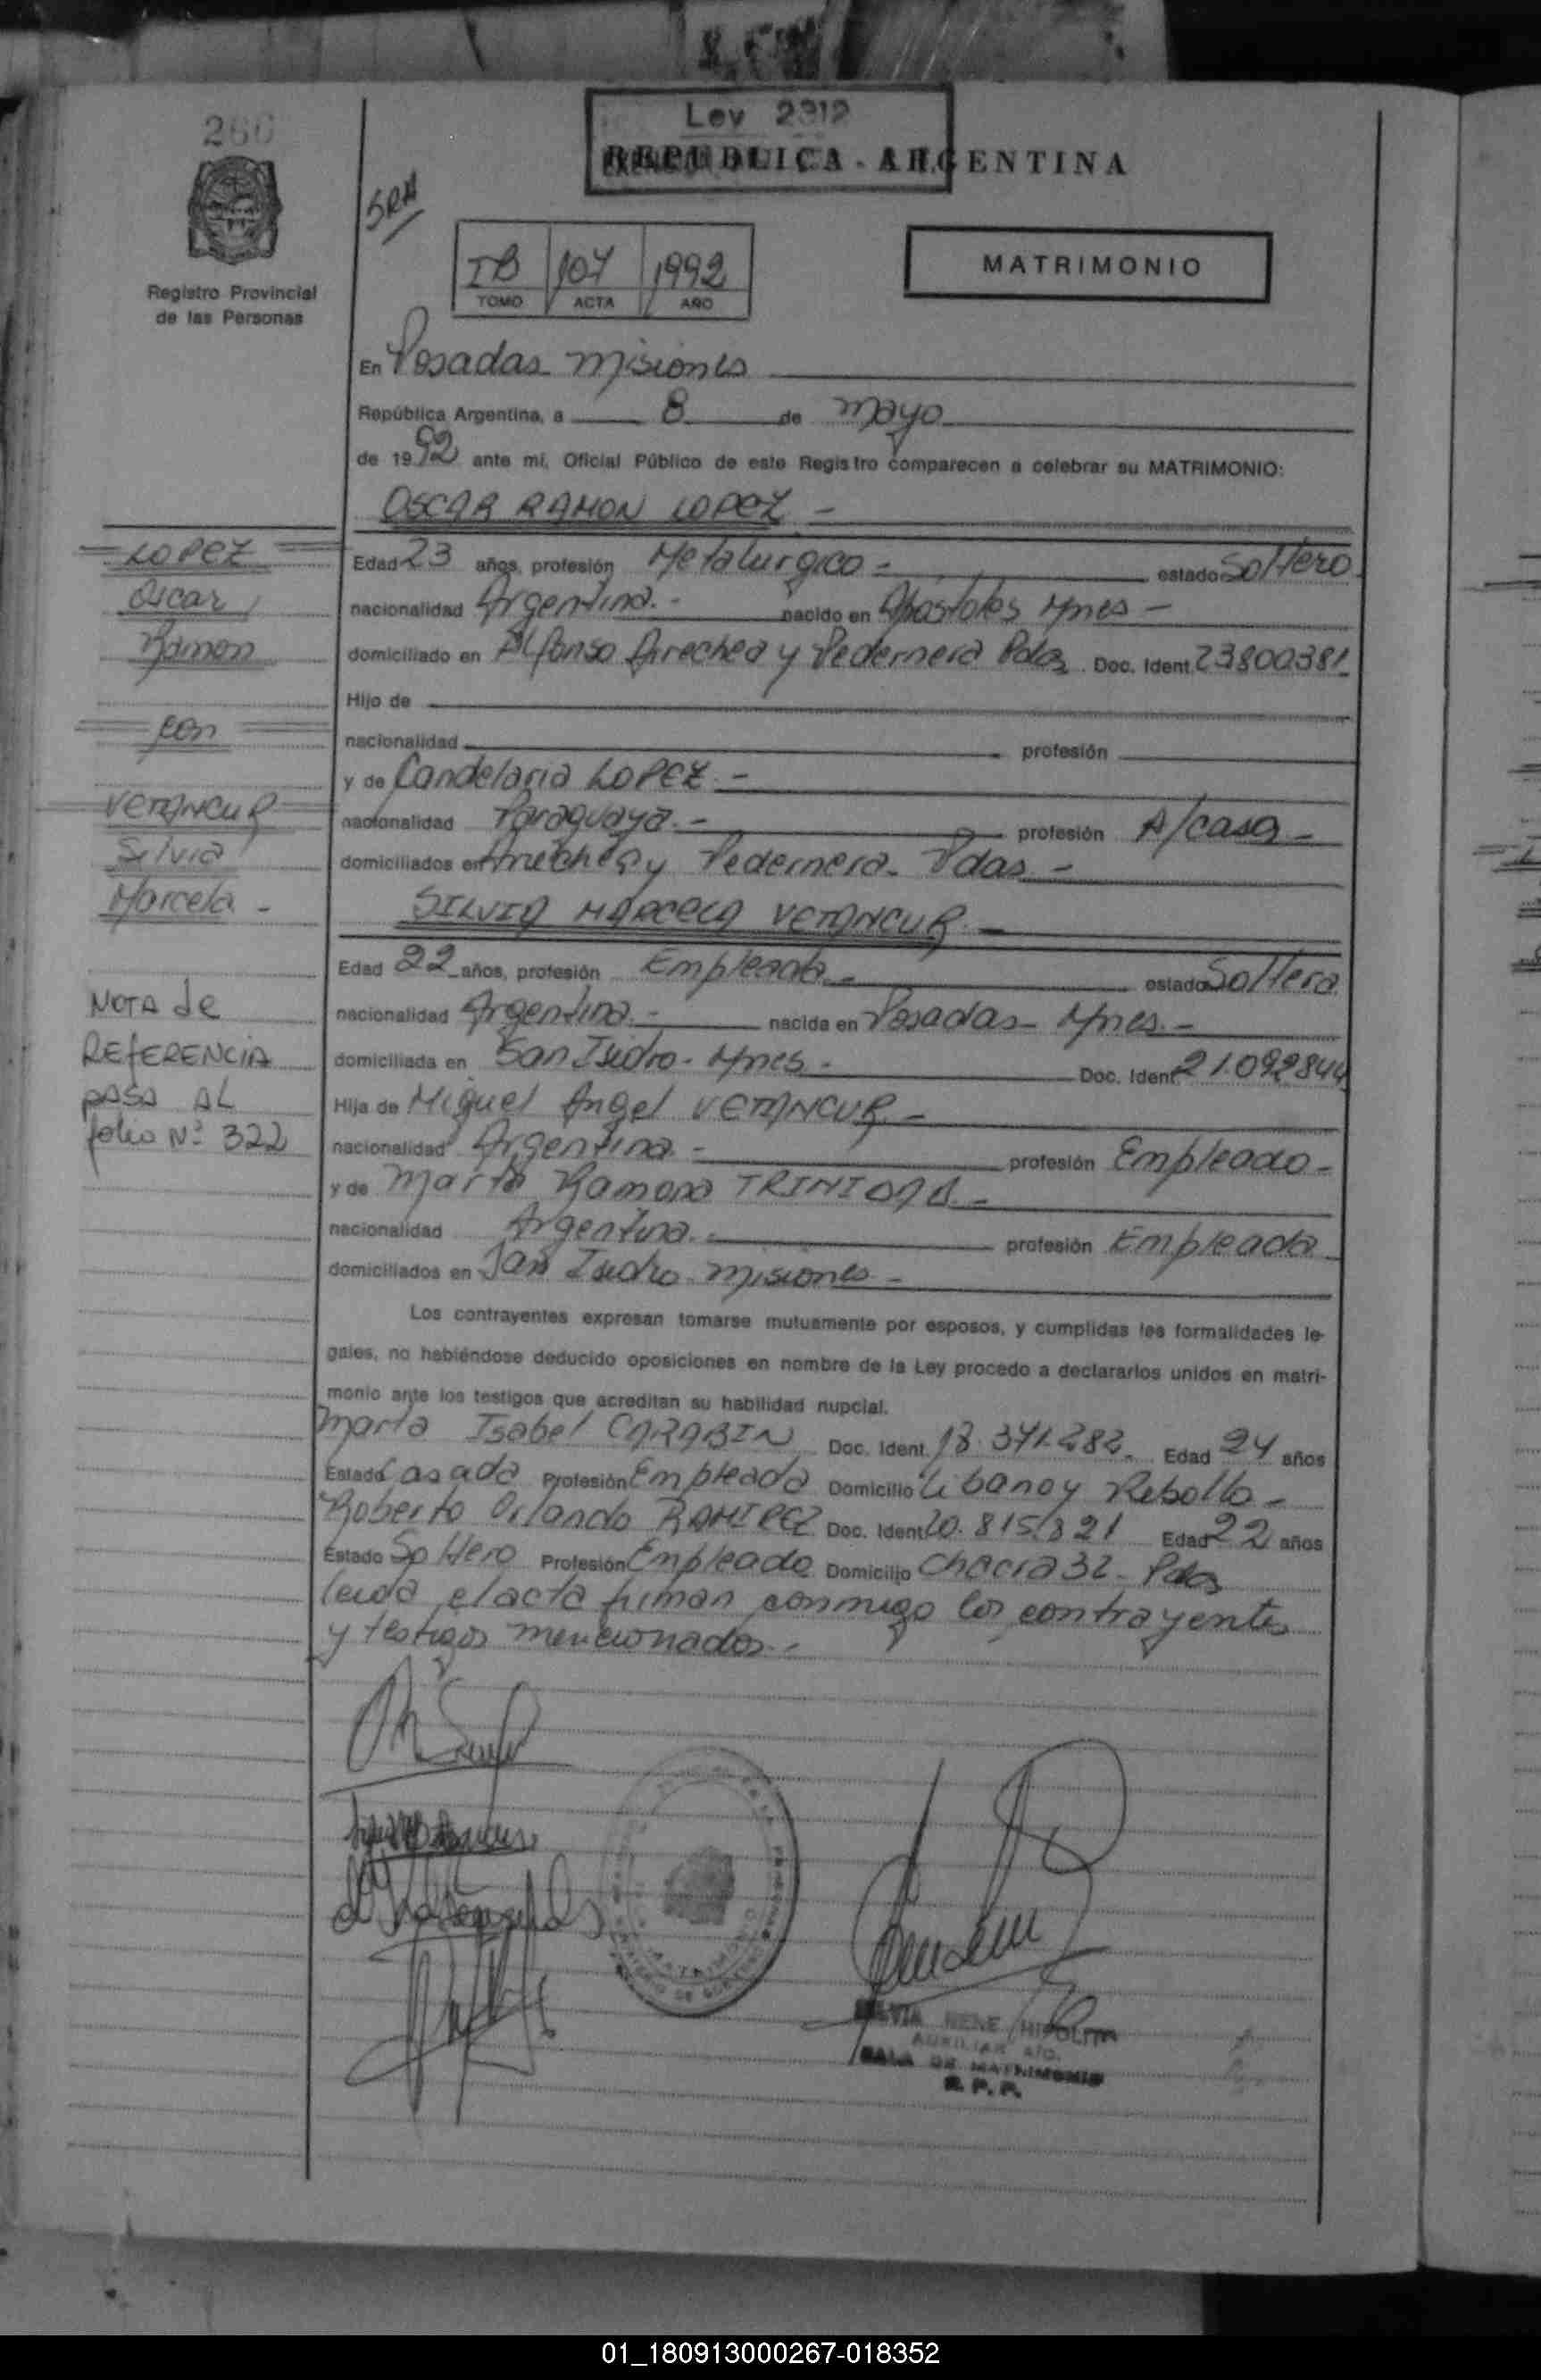 266
Ley 2312
REPUBLICA ARGENTINA
Registro Provincial
de las Personas
IB 107 1992
TOMO ACTA AÑO
MATRIMONIO
En Posadas Misiones
República Argentina, a 8 de mayo
de 1992 ante mí, Oficial Público de este Registro comparecen a celebrar su MATRIMONIO:
OSCAR RAMON LOPEZ -
LOPEZ
Oscar
Ramon
con
VETANCUR
Silvia
Marcela -
NOTA de
REFERENCIA
PASA AL
folio Nº 322
Edad 23 años, profesión Metalurgico - estado Soltero
nacionalidad Argentina - nacido en Apostoles Mnes -
domiciliado en Alfonso Arrechea y Pedernera Pdas Doc. Ident. 23800381
Hijo de
nacionalidad profesión
y de Candelaria LOPEZ -
nacionalidad Paraguaya - profesión A/casa -
domiciliados en Arrechea y Pedernera - Pdas -
SILVIA MARCELA VETANCUR -
Edad 22 años, profesión Empleada - estado Soltera
nacionalidad Argentina - nacida en Posadas - Mnes. -
domiciliada en San Isidro - Mnes - Doc. Ident. 21.092844
Hija de Miguel Angel VETANCUR -
nacionalidad Argentina - profesión Empleado -
y de Marta Ramona TRINIDAD -
nacionalidad Argentina - profesión Empleada
domiciliados en San Isidro Misiones -
Los contrayentes expresan tomarse mutuamente por esposos, y cumplidas las formalidades le-
gales, no habiéndose deducido oposiciones en nombre de la Ley procedo a declararlos unidos en matri-
monio ante los testigos que acreditan su habilidad nupcial.
Marta Isabel CARABIN Doc. Ident. 18.371.282 - Edad 24 años
Estado Casada Profesión Empleada Domicilio Libano y Rebollo -
Roberto Orlando RAMIREZ Doc. Ident. 20.815.321 Edad 22 años
Estado Soltero Profesión Empleado Domicilio Chacra 32 - Pdas
leida el acta firman conmigo los contrayentes
y testigos mencionados -
SILVIA RENE HIPOLITA
AUXILIAR A/C.
SALA DE MATRIMONIO
R. P. P.
01_180913000267-018352